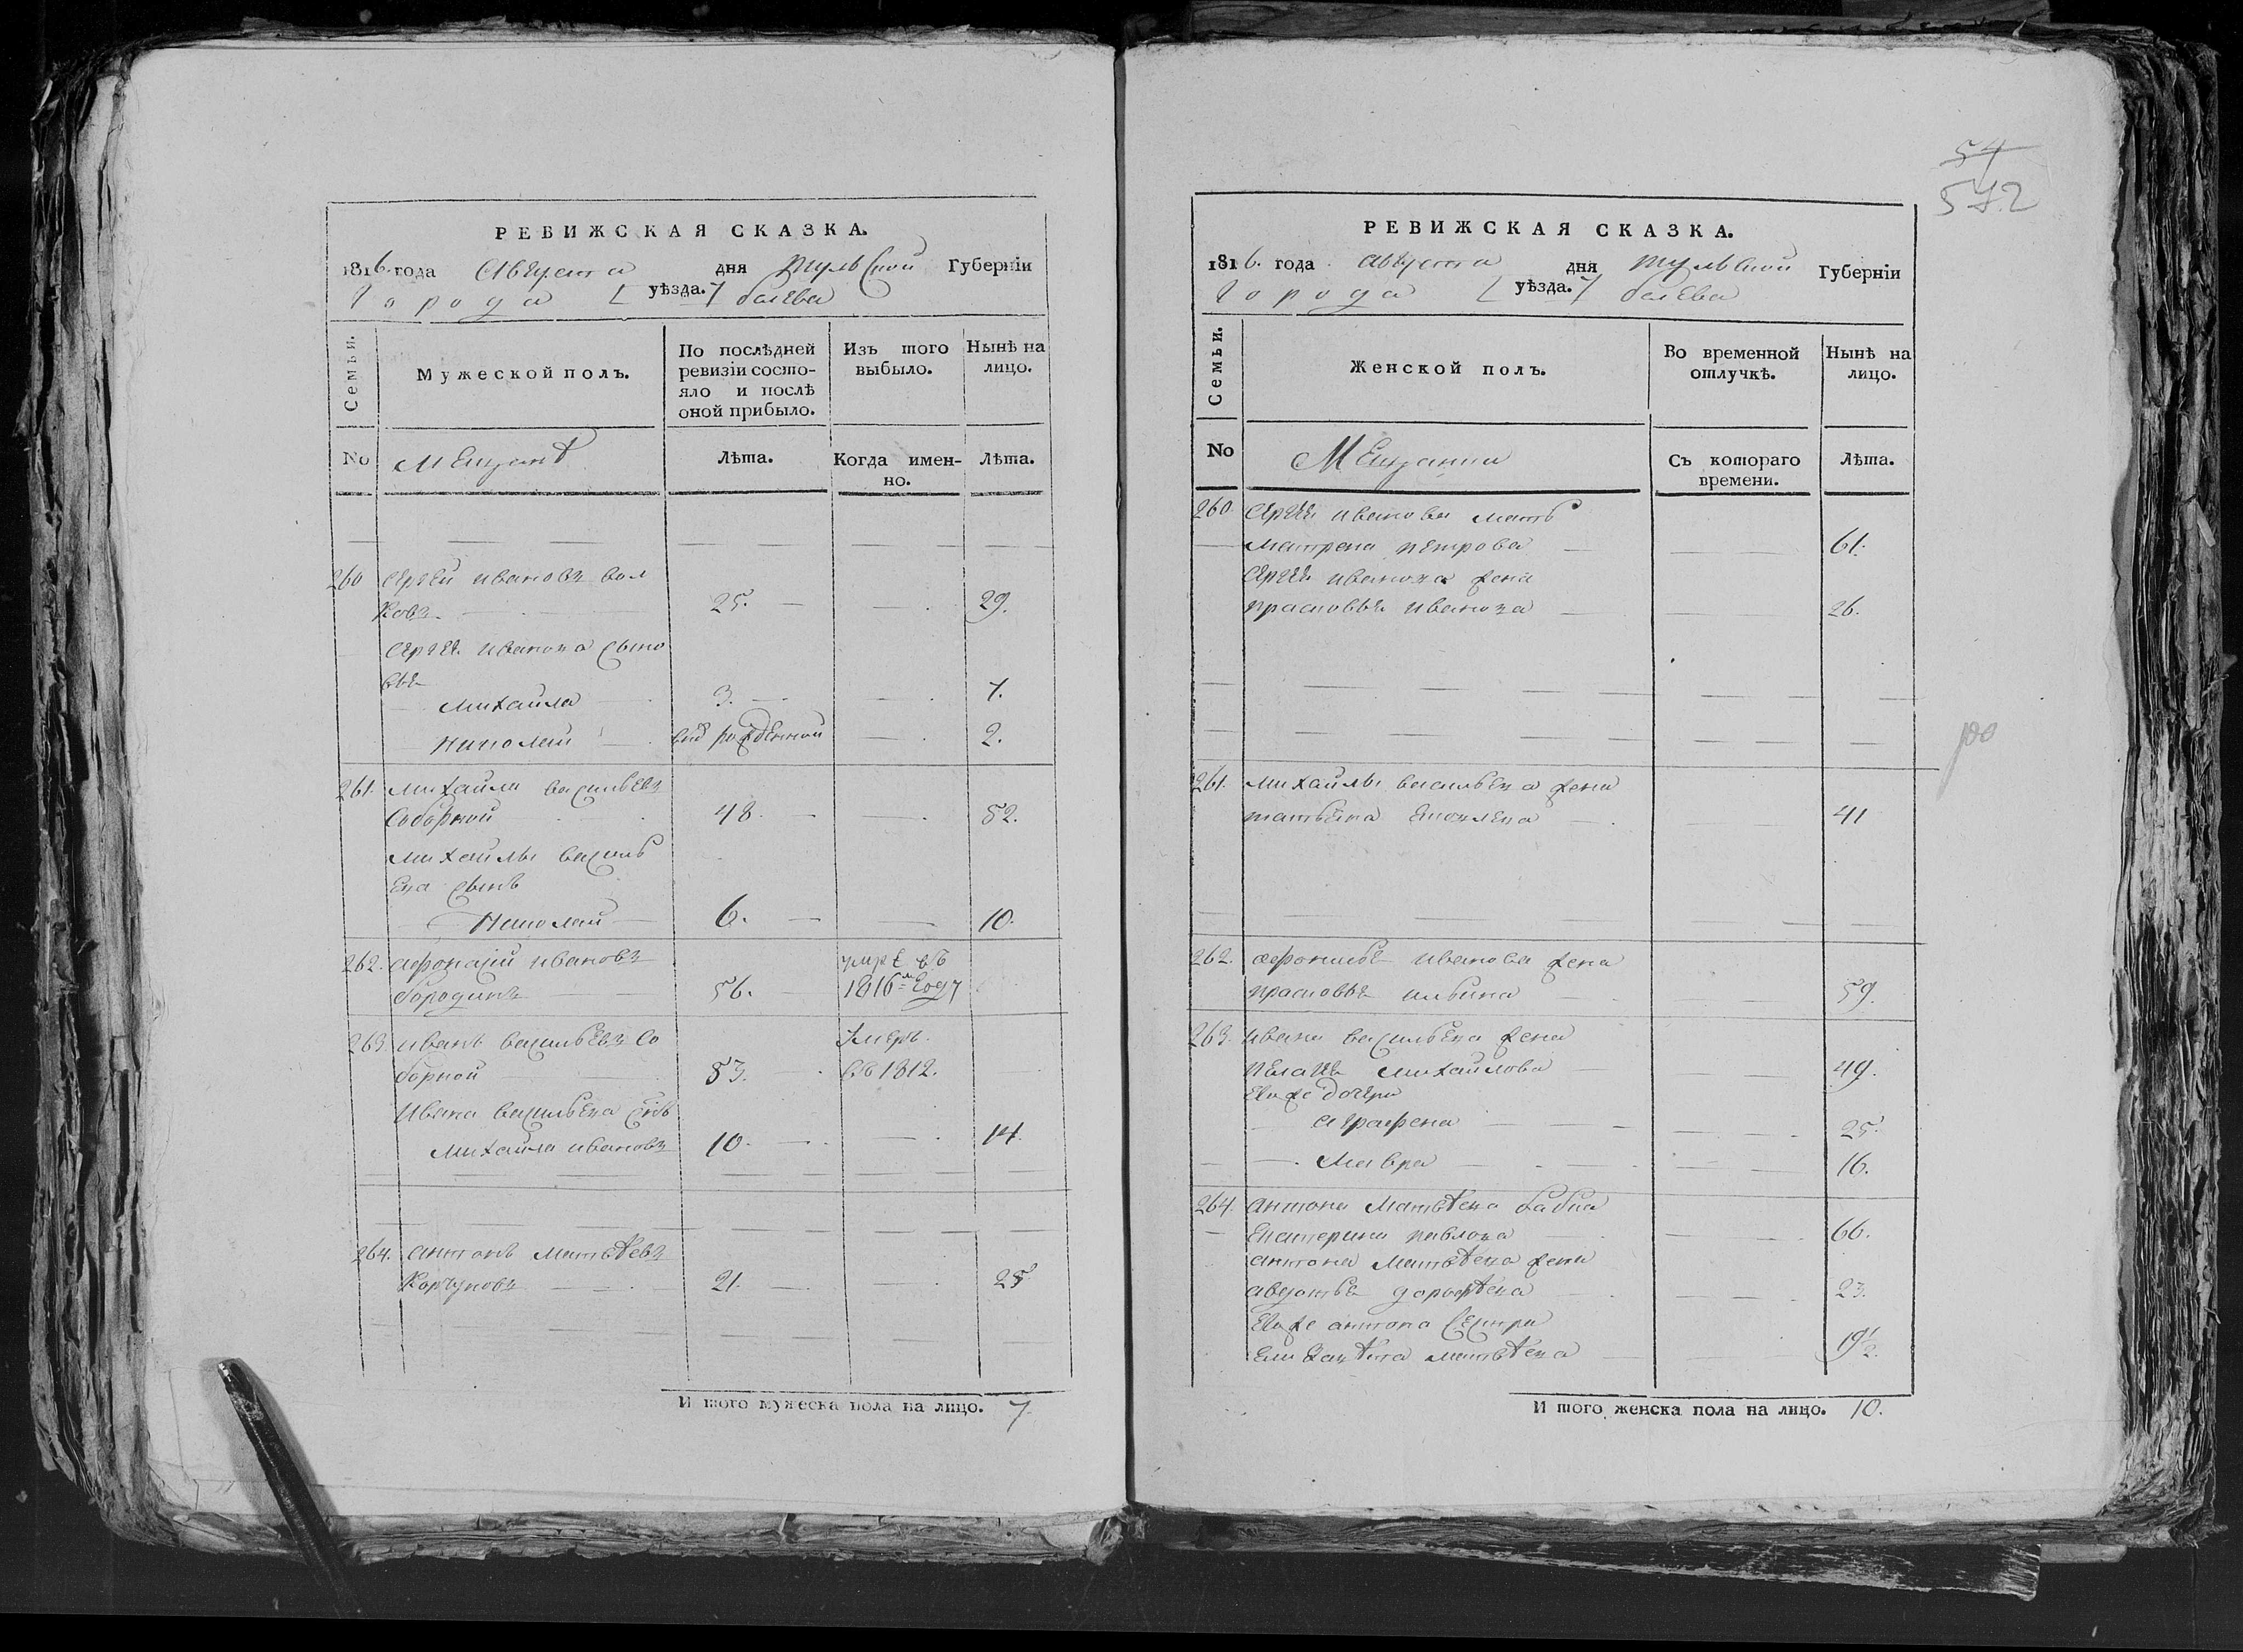 РЕВИЖСКАЯ СКАЗКА.
1816. года Августа дня тульской Губерніи
города [уѣзда.] белева
Семьи.
Мужеской полъ.
По послѣдней ревизіи состо-
яло и послѣ
оной прибыло.
Изъ того выбыло.
Нынѣ на лицо.
No
Мещанѣ
Лѣта.
Когда имен-
но.
Лѣта.
260 Сергей ивановъ вол
ковъ 25. 29.
Сергея иванова сыно
вья
михайла 3. 7.
николай внѡв рожденной 2.
261. михайла васильевъ
Соборной 48. 52.
михайлы василь
ева сынъ
Николай 6. 10.
262. афонасій ивановъ умре въ
бородинъ 56. 1816м году
263. иванъ васильевъ со Умеръ
борной 53. въ 1812.
ивана васильева снъ
михайла ивановъ 10 14.
264. антонъ матвѣевъ
Коргуновъ 21. 25
И того мужеска пола на лицо. 7.
54
572
РЕВИЖСКАЯ СКАЗКА.
1816. года августа дня тульской Губерніи
города [уѣзда.] белева
Семьи.
Женской полъ.
Во временной
отлучкѣ.
Нынѣ на
лицо.
No
Мещанки
Съ котораго
времени.
Лѣта.
260 Сергея иванова мать
матрена петрова 61.
Сергея иванова жена
прасковья иванова 26.
261. михайлы васильева жена
татьяна 41
262. афонасья иванова жена
прасковья ильина 59.
263. ивана васильева жена
пелагея михайлова 49.
Ево же дочери
аграфена 25.
Мавра 16.
264. антона матвѣева бабка
Екатерина павлова 66.
антона матвѣева жена
авдотья дорофѣева 23.
Ево же антона сестра
Елизавѣта матвѣева 19 1/2.
И того женска пола на лицо. 10.